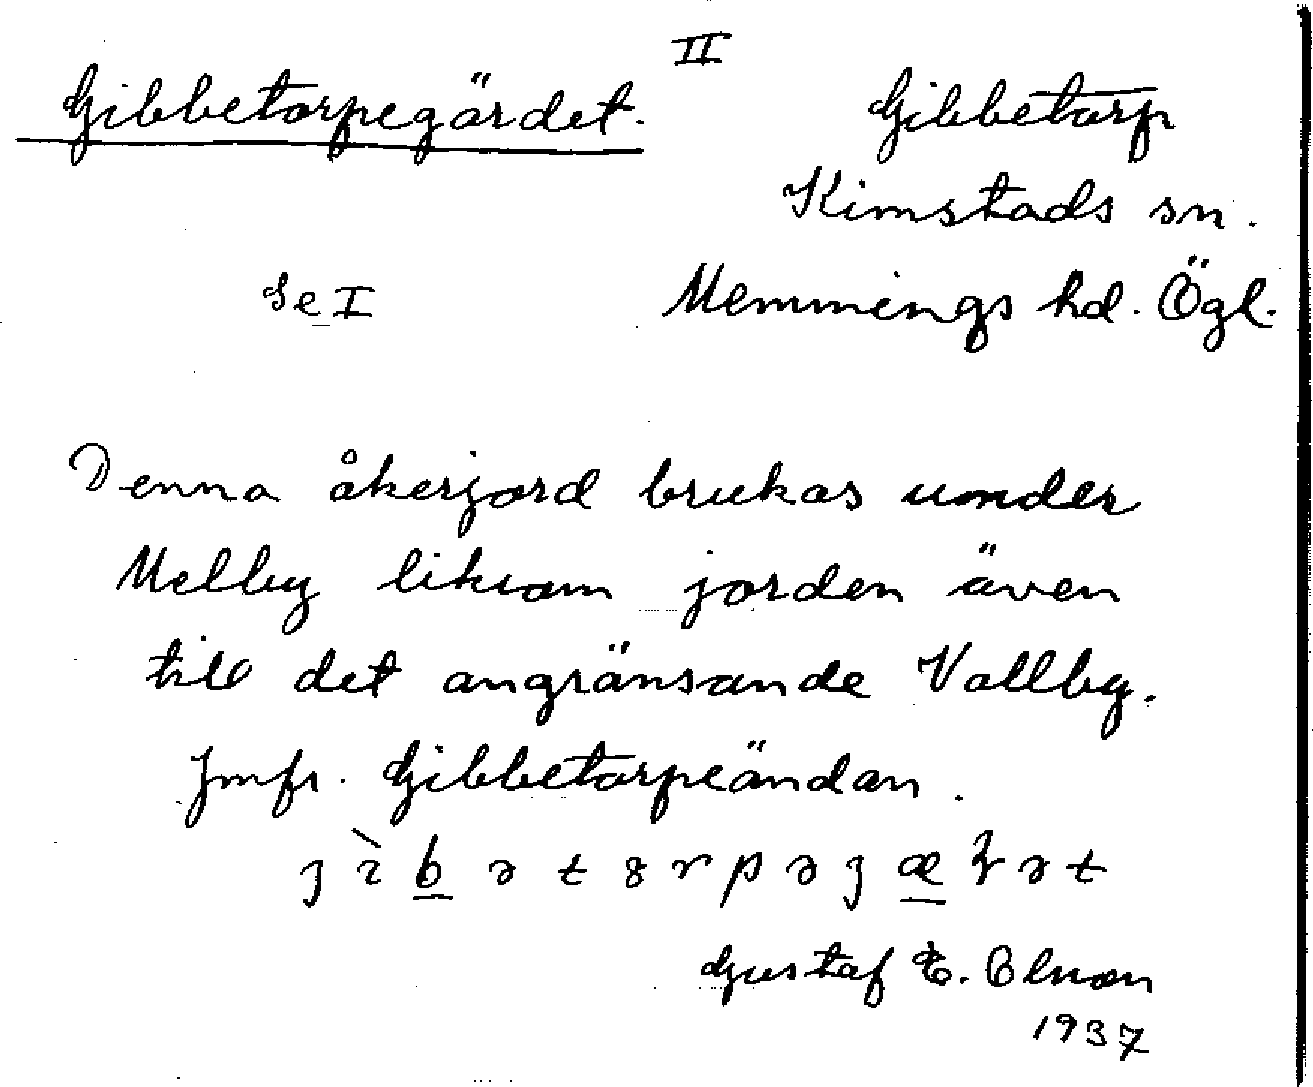 II
Gibbetorpegärdet.
Gibbetorp
Kimstads sn.
Se I
Memmings hd. Ögl.
Denna åkerjord brukas under
Melby liksom jorden även
till det angränsande Vallby.
Jmfr. Gibbetorpeändan.
Gustaf E. Olsson
1937